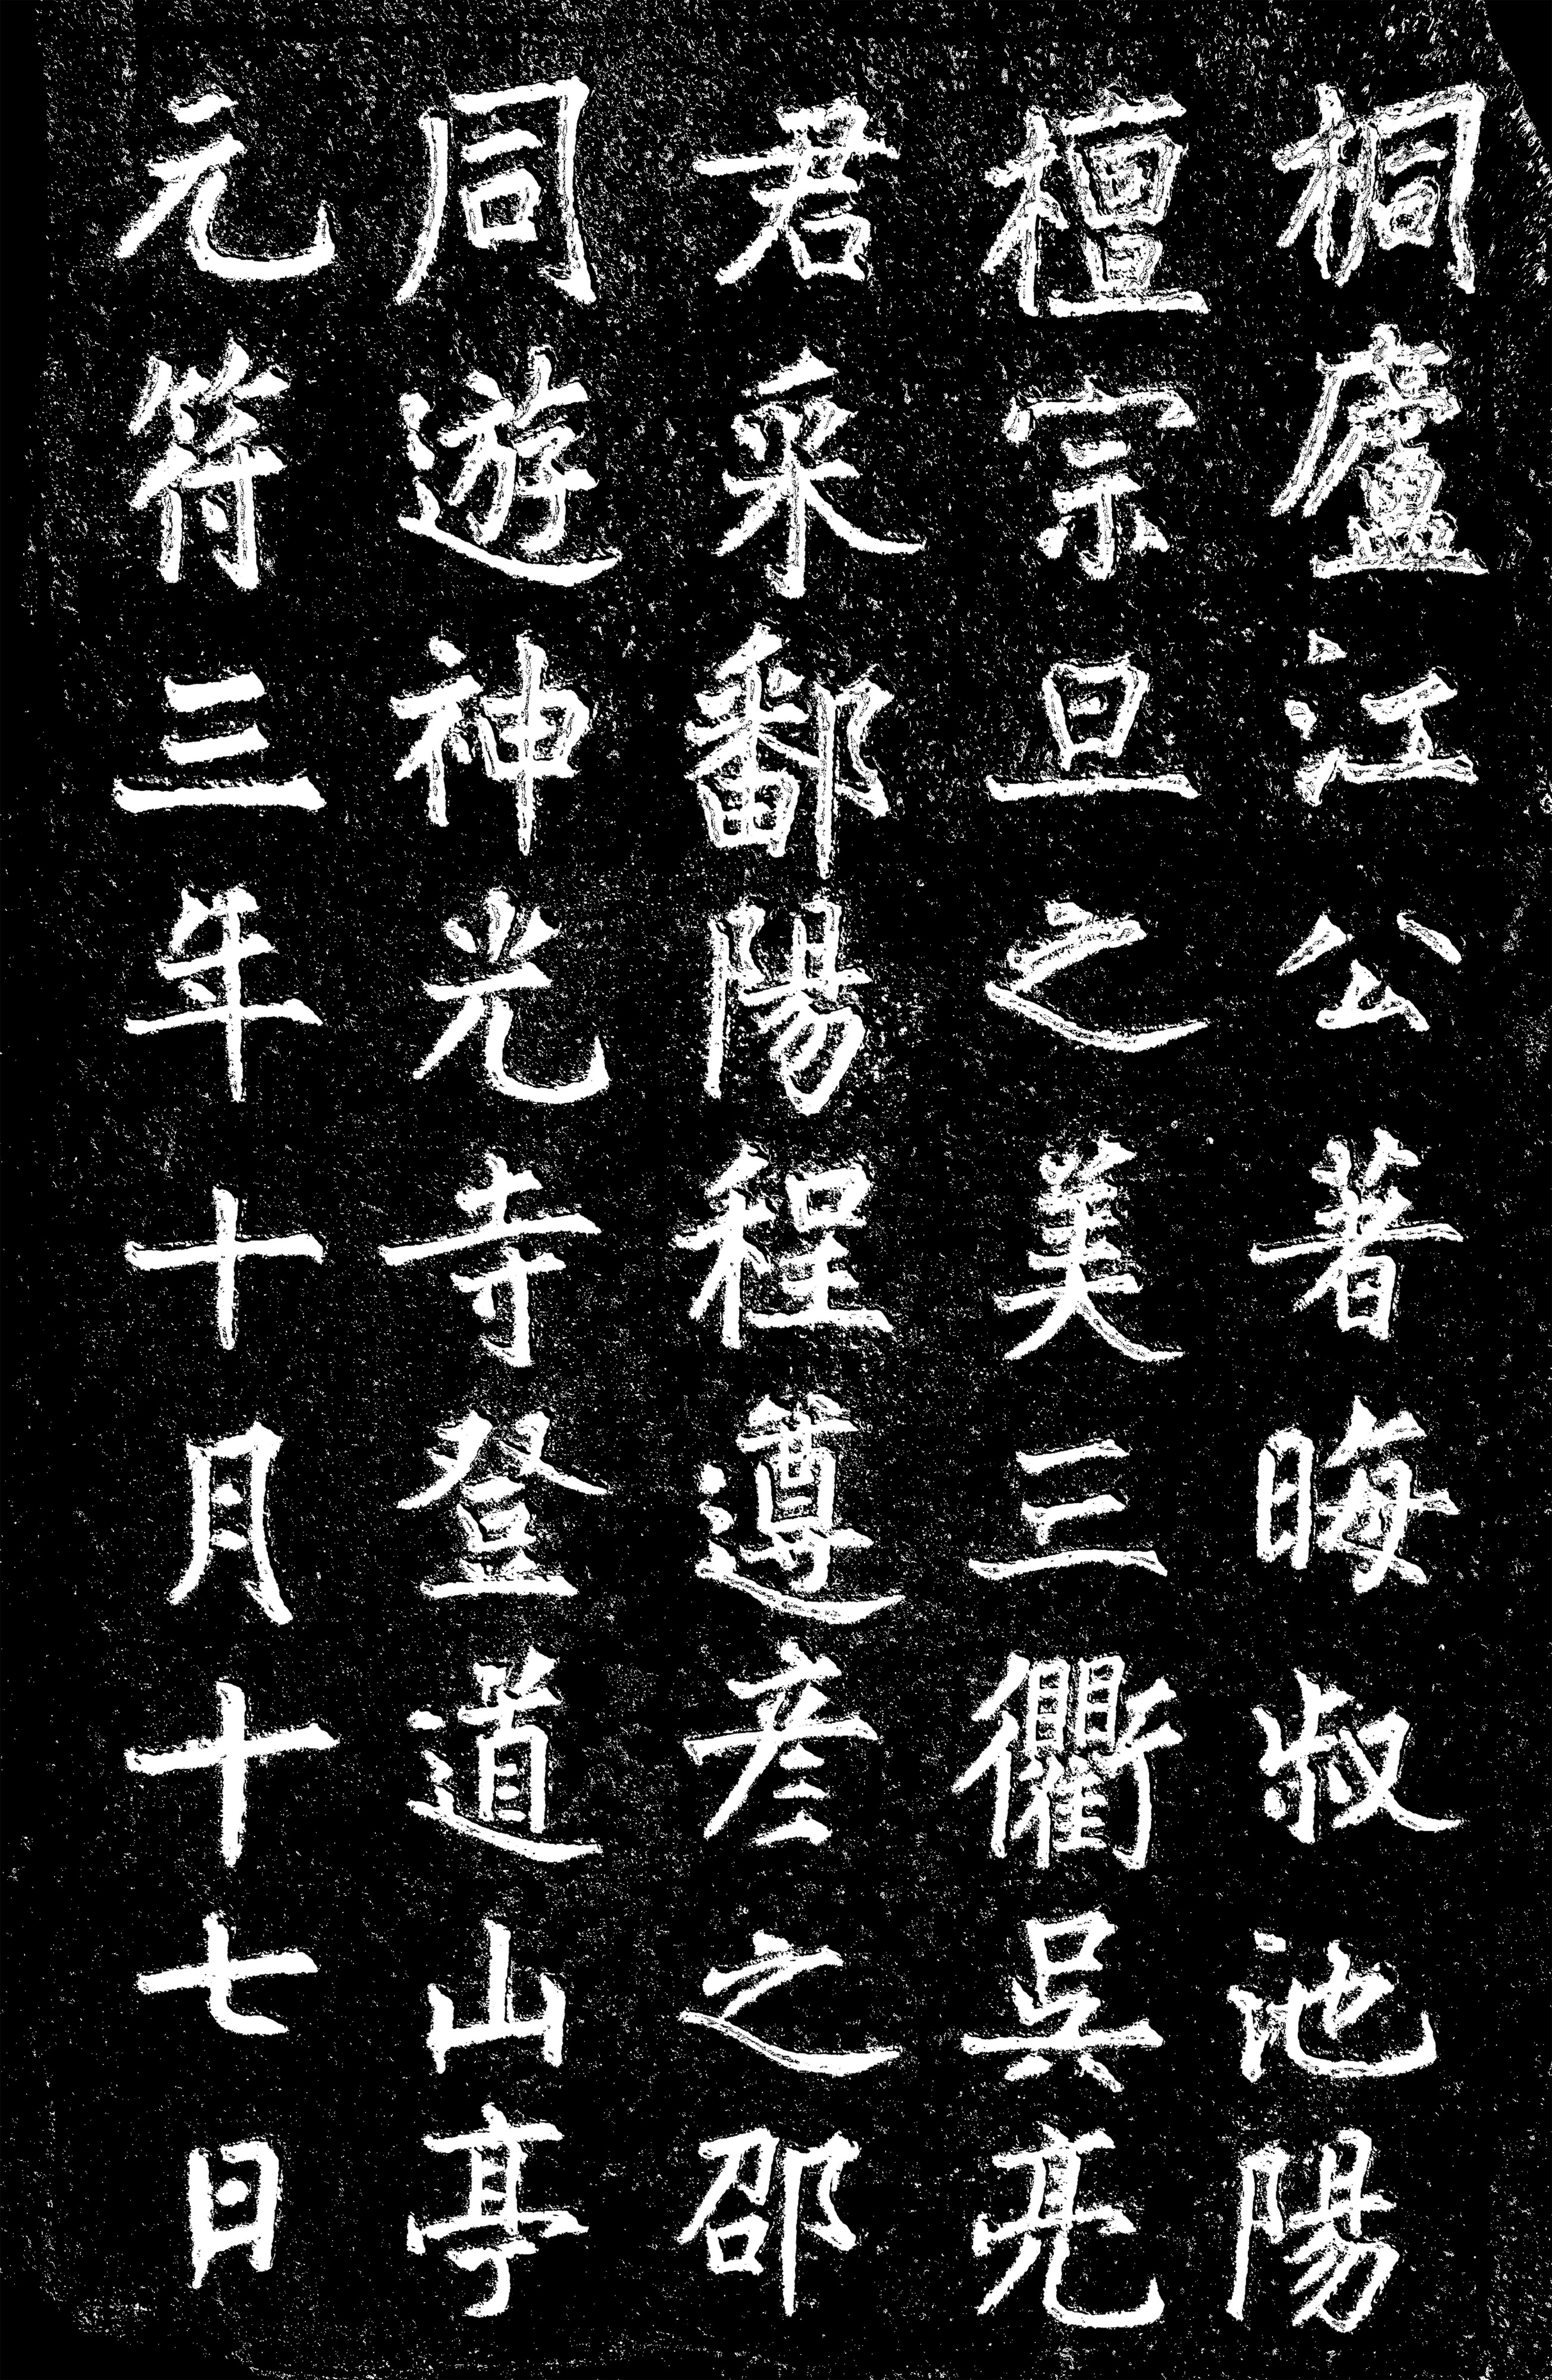 桐廬江公著晦叔池陽
檀宗旦之美三衢吳亮
君采鄱陽程遵彦之邵
同遊神光寺登道山亭
元符三年十月十七日